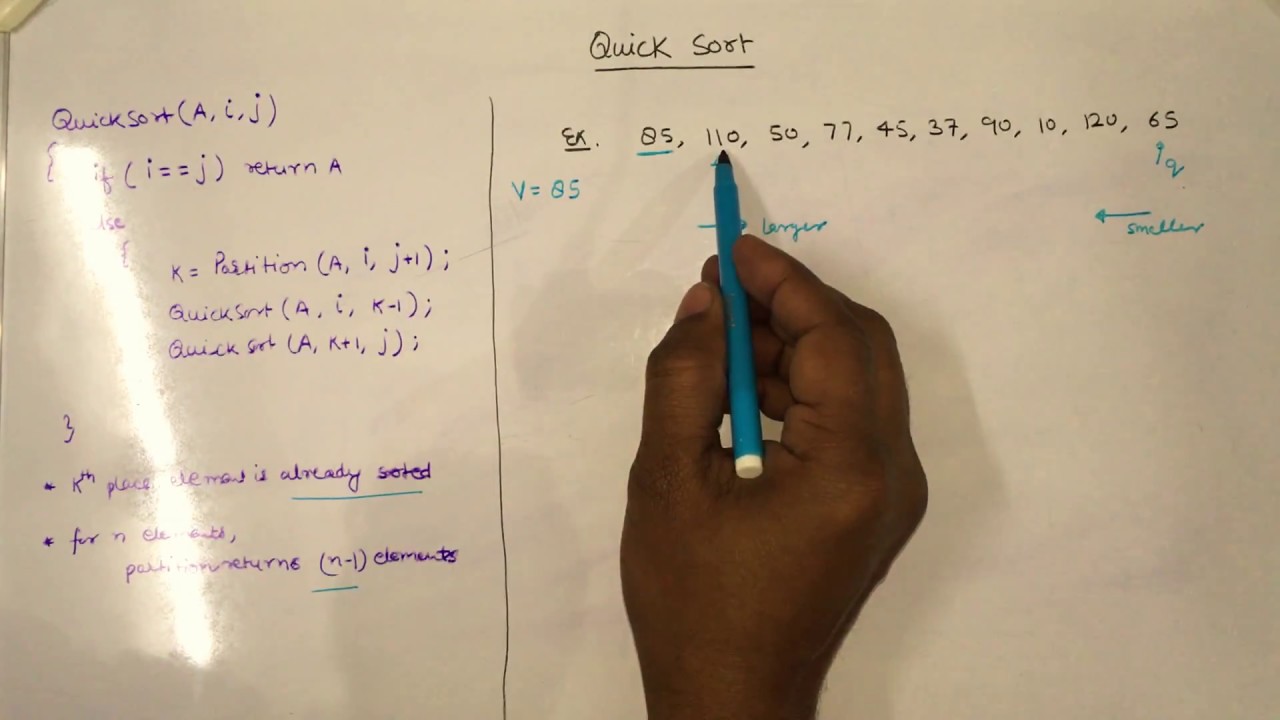 Quick Sort
QuickSort(A, i, j)
{
if (i==j) return A
lse
{
K = Partition (A, i, j+1);
QuickSort (A, i, K-1);
Quick sort (A, K+1, j);
}
* Kth place element is already soted
* for n elements,
partition returns (n-1) elements
Ex. 85, 110, 50, 77, 45, 37, 90, 10, 120, 65
V = 85
q
→ larger
← smaller